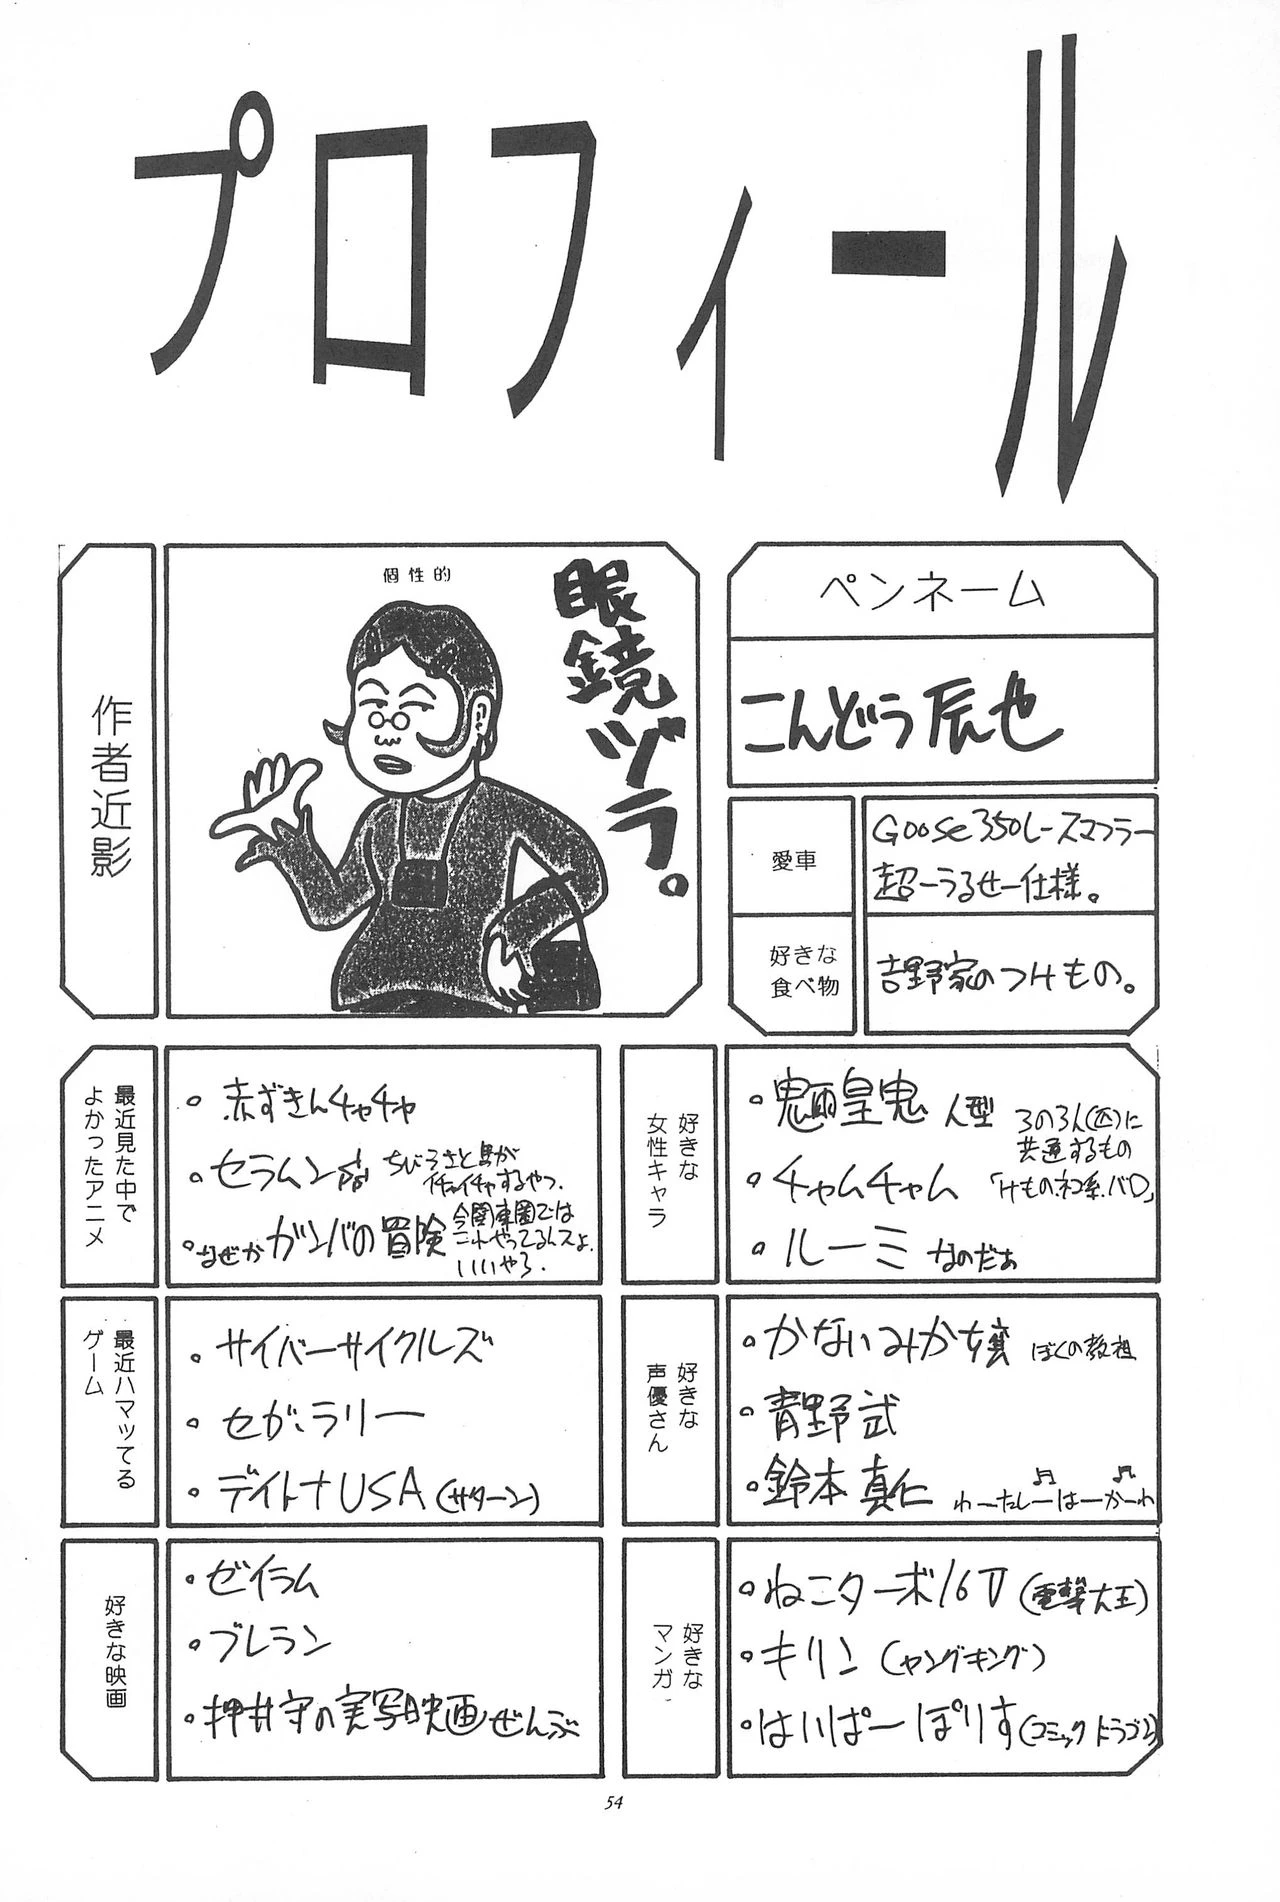 プロフィール
作者近影
個性的
眼鏡ヅラ。
ペンネーム
こんどう辰也
愛車
Goose350レースマフラー
超ーうるせー仕様。
好きな
食べ物
吉野家のつけもの。
最近見た中で
よかったアニメ
・赤ずきんチャチャ
・セラムン
ちびうさと馬が
イチャイチャするやつ。
・なぜかガンバの冒険
今関東圏では
これやってるんスよ。
いいやろ.
好きな
女性キャラ
・魎皇鬼 人型
・チャムチャム
・ルーミィ なのだぁ
この3人(匹)に
共通するもの
「けもの、ネコ系、バロ」
最近ハマッてる
ゲーム
・サイバーサイクルズ
・セガ・ラリー
・デイトナUSA(サターン)
好きな
声優さん
・かないみか嬢 ぼくの教祖
・青野武
・鈴本真仁 わーたしーはーかーわ
好きな映画
・ゼイラム
・ブレラン
・押井守の実写映画ぜんぶ
好きな
マンガ
・ねこターボ16V(電撃大王)
・キリン(ヤングキング)
・はいぱーぽりす(コミックドラゴン)
54